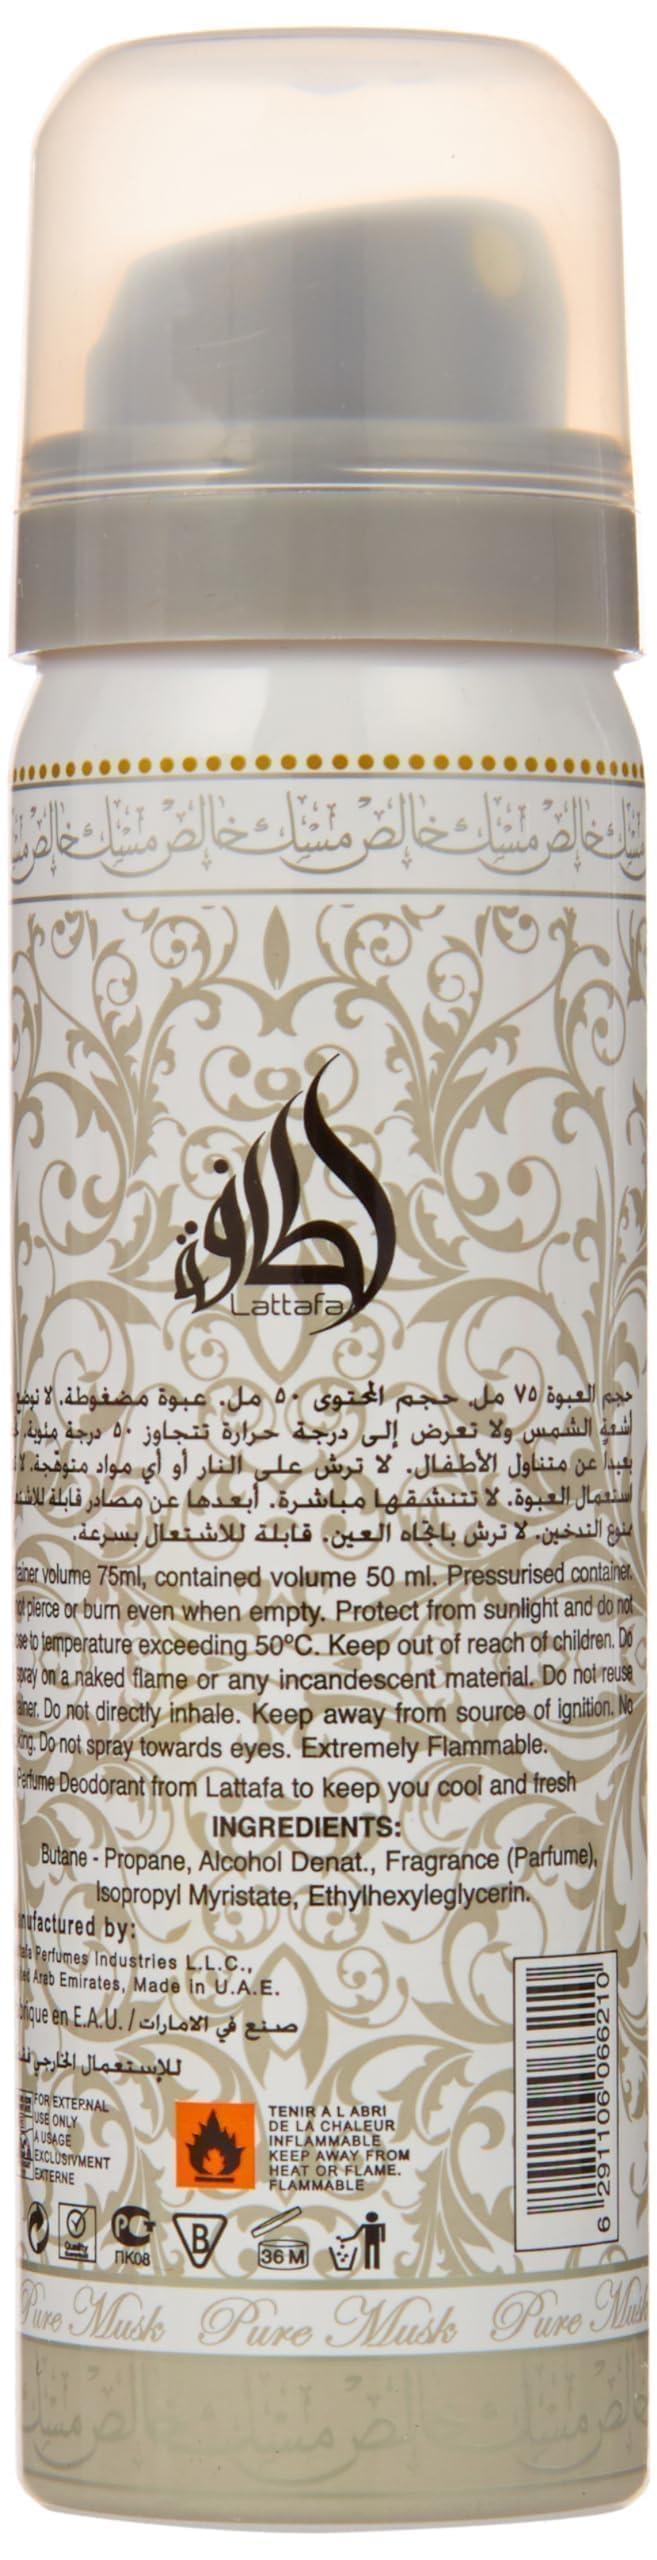 خالص مسك خالص مسك خالص مسك خالص
لطافة
Lattafa
حجم العبوة ٧٥ مل. حجم المحتوى ٥٠ مل. عبوة مضغوطة. لا توضع
أشعة الشمس ولا تعرض إلى درجة حرارة تتجاوز ٥٠ درجة مئوية.
بعيداً عن متناول الأطفال. لا ترش على النار أو أي مواد متوهجة. لا
استعمال العبوة. لا تتنشقها مباشرة. أبعدها عن مصادر قابلة
التدخين. لا ترش باتجاه العين. قابلة للاشتعال بسرعة.
volume 75ml, contained volume 50 ml. Pressurised container.
pierce or burn even when empty. Protect from sunlight and do not
to temperature exceeding 50ºC. Keep out of reach of children. Do
spray on a naked flame or any incandescent material. Do not reuse
Do not directly inhale. Keep away from source of ignition. No
Do not spray towards eyes. Extremely Flammable.
Perfume Deodorant from Lattafa to keep you cool and fresh
INGREDIENTS:
Butane - Propane, Alcohol Denat., Fragrance (Parfume),
Isopropyl Myristate, Ethylhexyleglycerin.
by:
Perfumes Industries L.L.C.,
Arab Emirates, Made in U.A.E.
en E.A.U. / صنع في الامارات
للإستعمال الخارجي
FOR EXTERNAL
USE ONLY
A USAGE
EXCLUSIVMENT
EXTERNE
TENIR A L ABRI
DE LA CHALEUR
INFLAMMABLE
KEEP AWAY FROM
HEAT OR FLAME.
FLAMMABLE
Quality
ПК08
B
36 M
6 291106 066210
Pure Musk Pure Musk Pure Musk
خالص مسك خالص مسك خالص